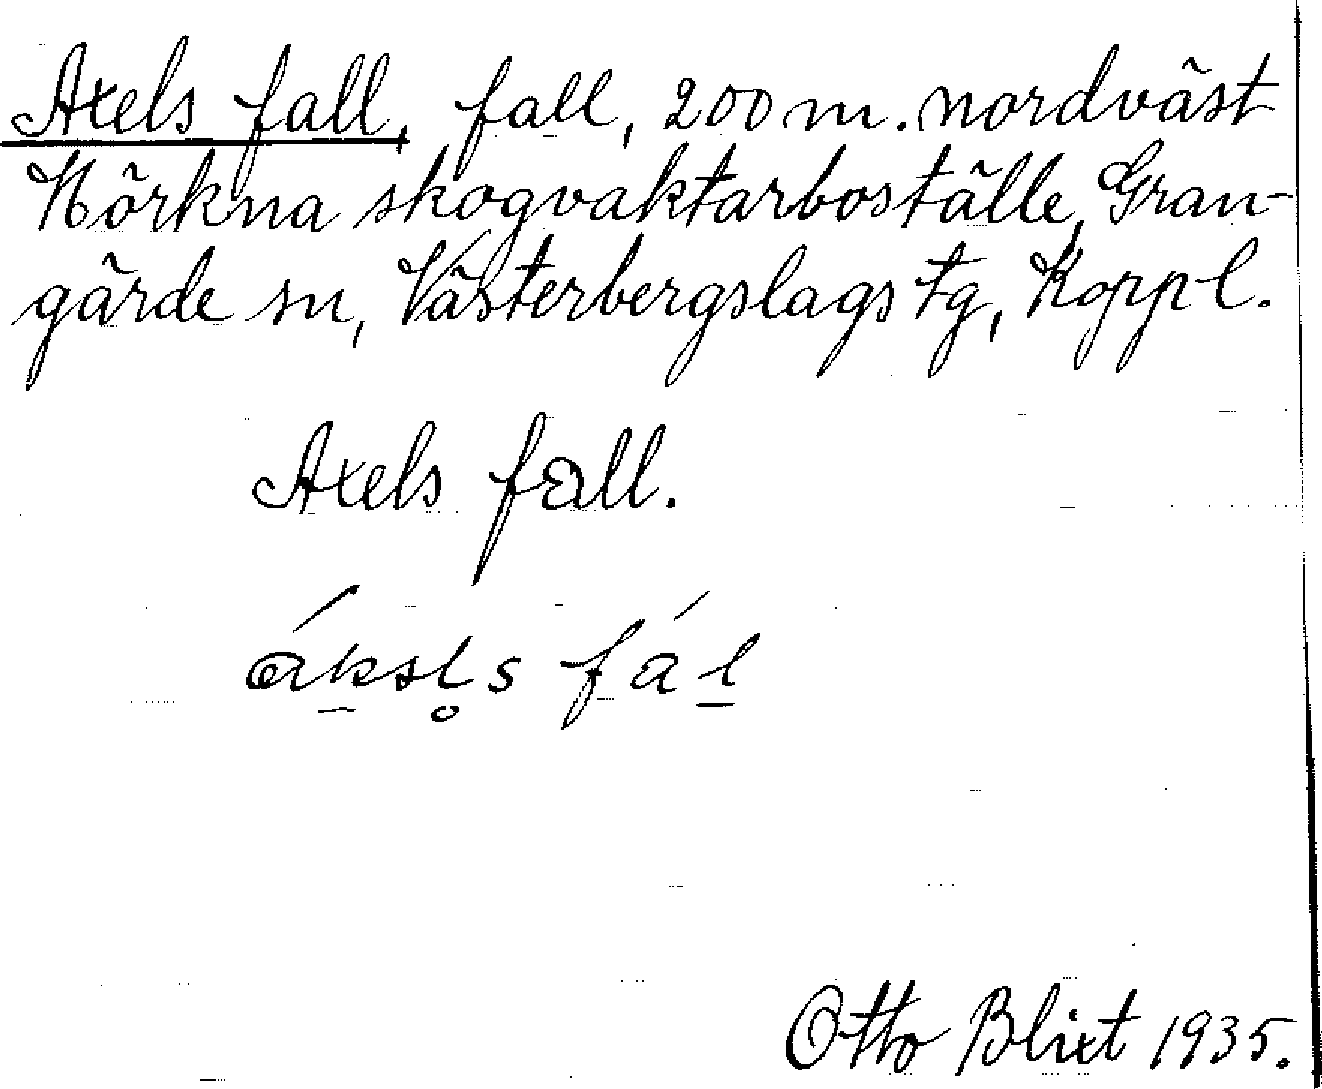 Axels fall, fall, 200 m. nordväst
Hörkna skogvaktarboställe, Gran-
gärde sn, Västerbergslags tg, Koppl.
Axels fall.
áksl̥s fál̲
Otto Blixt 1935.